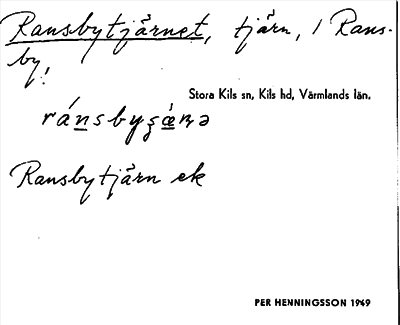 Ransbytjärnet, tjärn, i Rans-
by!
Stora Kils sn, Kils hd, Värmlands län.
Ransbytjärn ek
PER HENNINGSSON 1969